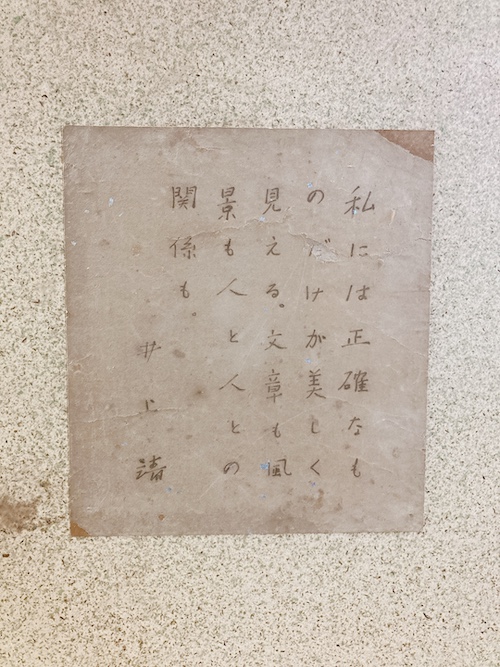 私には正確なも
のだけが美しく
見える。文章も風
景も人と人との
関係も
井上靖